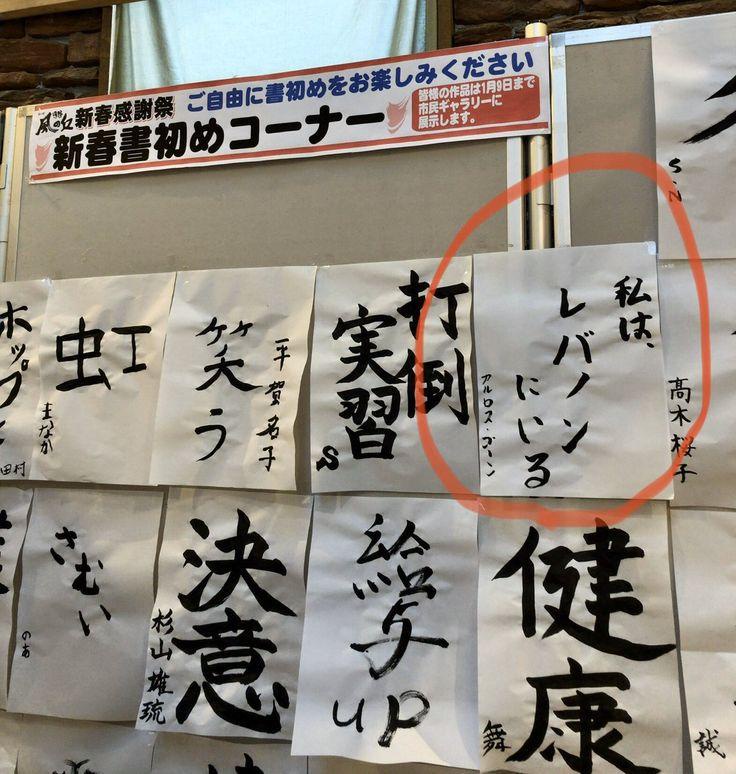 風の丘
新春感謝祭
ご自由に書初めをお楽しみください
新春書初めコーナー
皆様の作品は1月9日まで
市民ギャラリーに
展示します。
S.N
私は、
レバノン
にいる
アルロス・ゴーン
打倒
実習
S
笑う
平賀名子
虹
まなか
ホップ
田村
高木桜子
健康
舞
給与
up
決意
杉山雄琉
さむい
のあ
誠